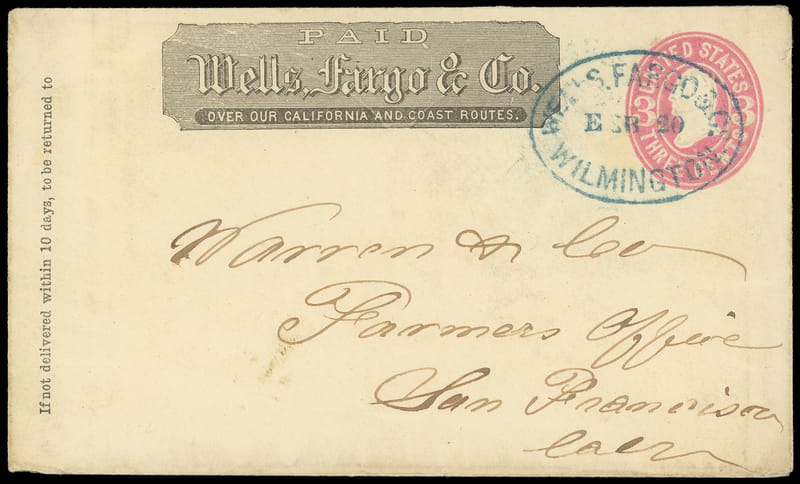 If not delivered within 10 days, to be returned to
PAID
Wells, Fargo & Co.
OVER OUR CALIFORNIA AND COAST ROUTES.
WELLS, FARGO & CO.
FEB 20
WILMINGTON
UNITED STATES
THREE
Warren & Co
Farmers Office
San Francisco